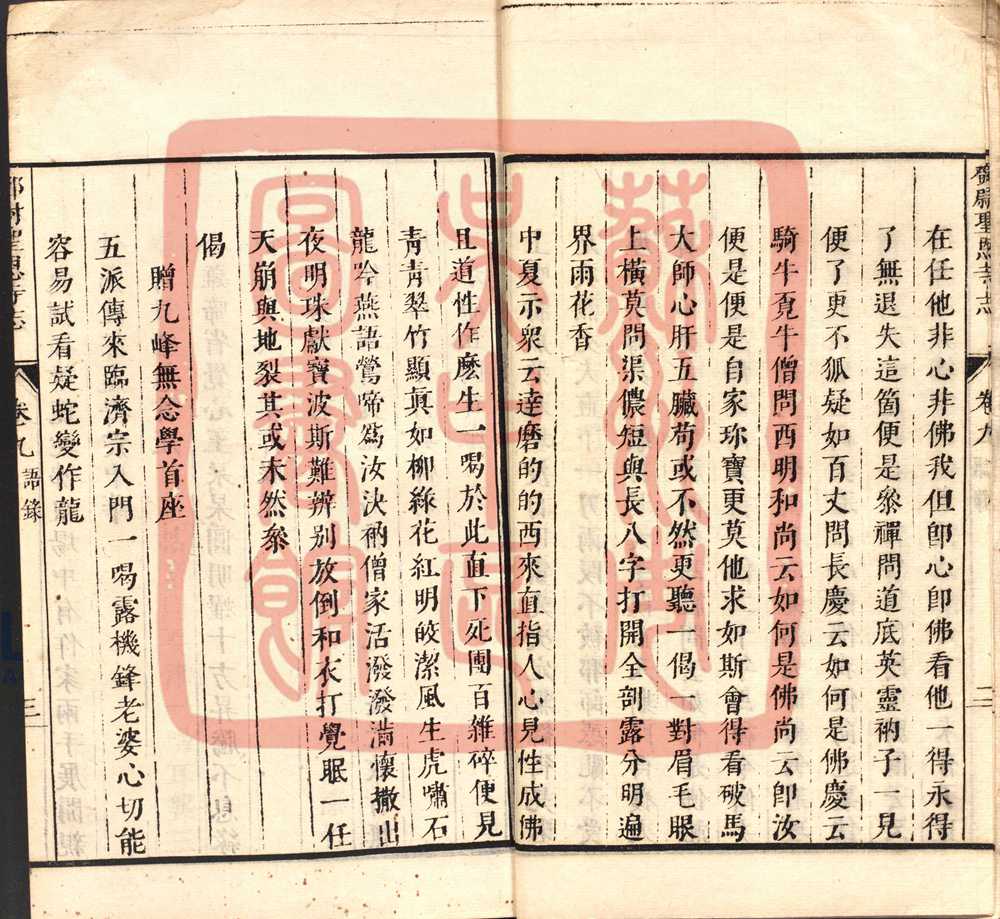 鄧尉聖恩寺志 卷九 二
在任他非心非佛我但卽心卽佛看他一得永得
了無退失這箇便是參禪問道底英靈衲子一見
便了更不狐疑如百丈問長慶云如何是佛慶云
騎牛覓牛僧問西明和尚云如何是佛尚云卽汝
便是便是自家珍寶更莫他求如斯會得看破馬
大師心肝五臟苟或不然更聽一偈一對眉毛眼
上橫莫問渠儂短與長八字打開全剖露分明遍
界雨花香
中夏示衆云達磨的的西來直指人心見性成佛
且道性作麽生一喝於此直下死團百雜碎便見
青青翠竹顯眞如柳綠花紅明皎潔風生虎嘯石
龍吟燕語鶯啼爲汝決衲僧家活潑潑滿懷撒出
夜明珠獻寶波斯難辨别放倒和衣打覺眠一任
天崩與地裂其或未然參
偈
贈九峰無念學首座
五派傳來臨濟宗入門一喝露機鋒老婆心切能
容易試看疑蛇變作龍
聖恩寺志 卷九 語錄 三